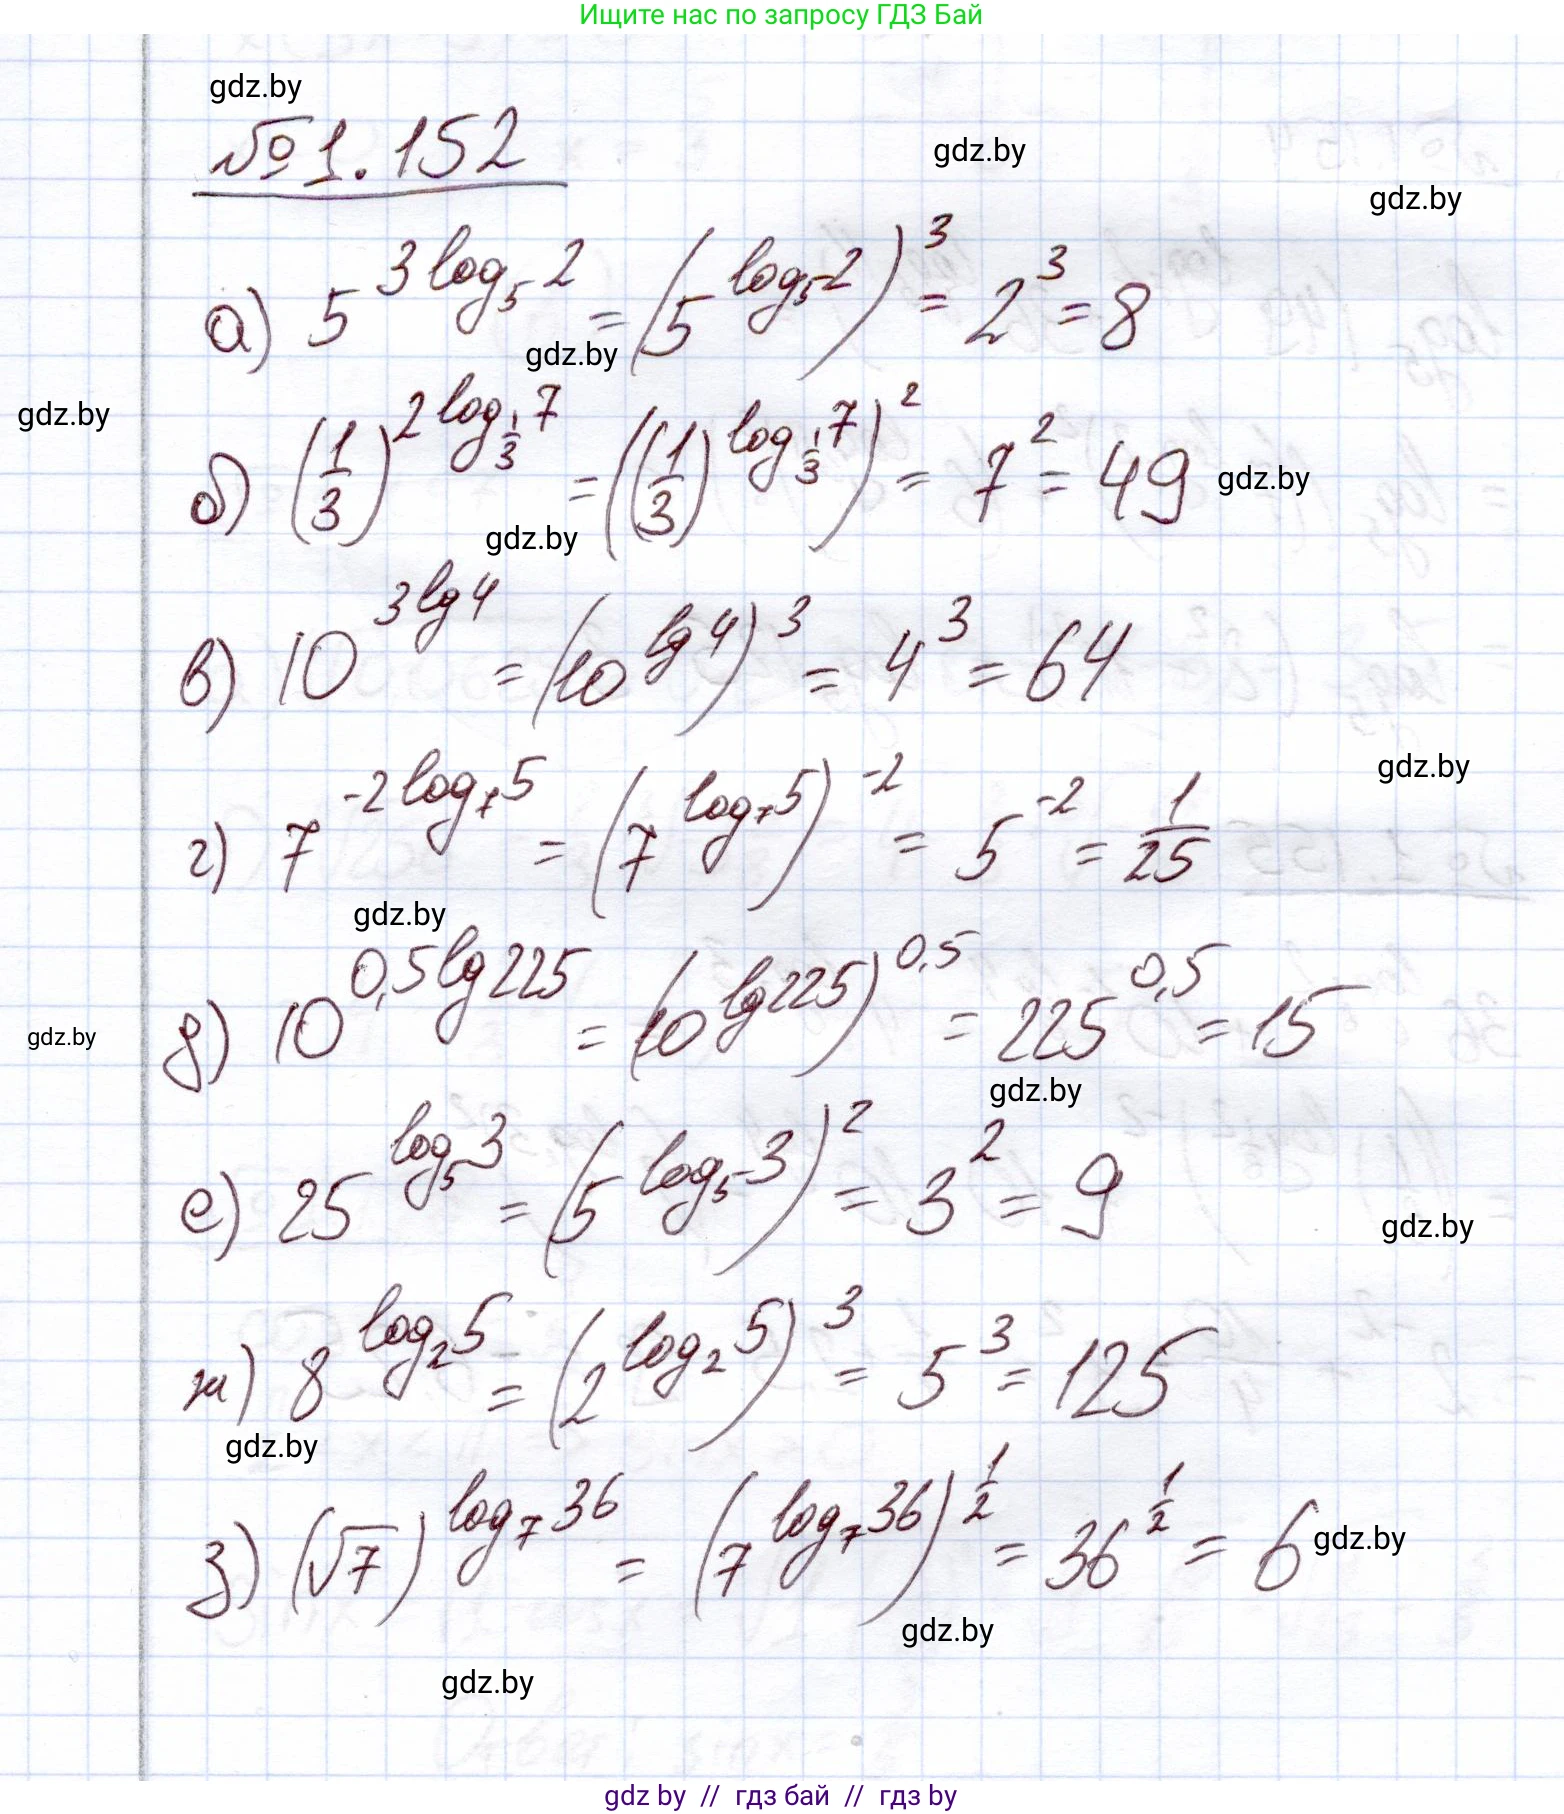 Ищите нас по запросу ГДЗ Бай
gdz.by
№ 1.152
gdz.by
gdz.by
а) 5^{3 log_5 2} = (5^{log_5 2})^3 = 2^3 = 8
gdz.by
gdz.by
б) (1/3)^{2 log_{1/3} 7} = ((1/3)^{log_{1/3} 7})^2 = 7^2 = 49
gdz.by
gdz.by
в) 10^{3 lg 4} = (10^{lg 4})^3 = 4^3 = 64
gdz.by
г) 7^{-2 log_7 5} = (7^{log_7 5})^{-2} = 5^{-2} = 1/25
gdz.by
д) 10^{0,5 lg 225} = (10^{lg 225})^{0,5} = 225^{0,5} = 15
gdz.by
gdz.by
е) 25^{log_5 3} = (5^{log_5 3})^2 = 3^2 = 9
gdz.by
ж) 8^{log_2 5} = (2^{log_2 5})^3 = 5^3 = 125
gdz.by
з) (√7)^{log_7 36} = (7^{log_7 36})^{1/2} = 36^{1/2} = 6
gdz.by
gdz.by
gdz.by
gdz by // гдз бай // гдз by